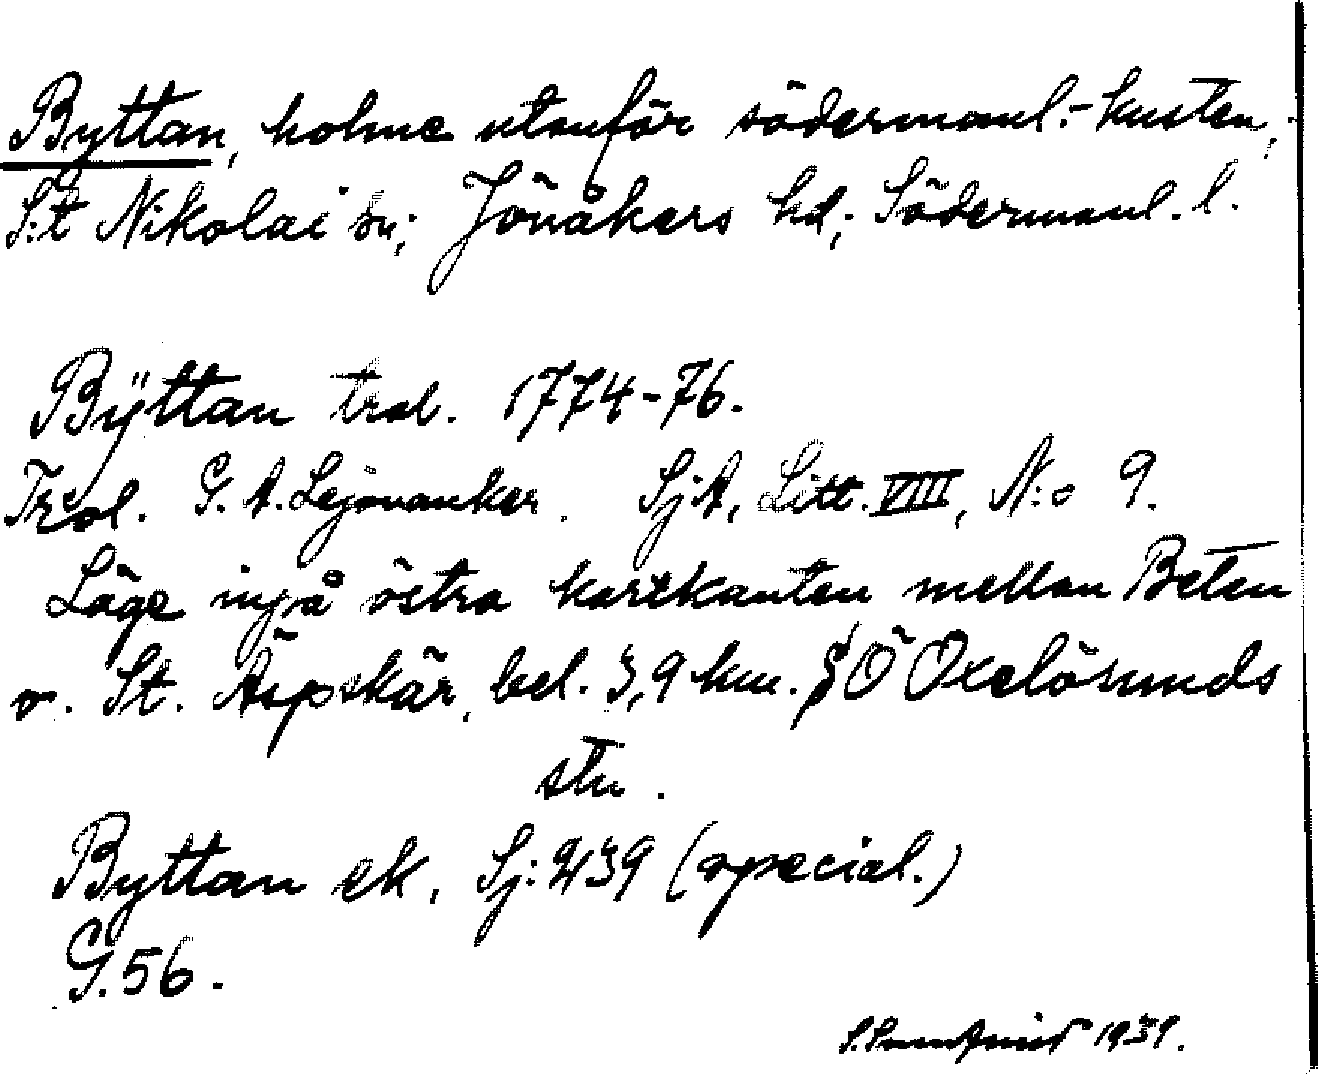 Byttan, holme utanför södermanl.-kusten,
S:t Nikolai sn; Jönåkers hd; Södermanl. l.
Bÿttan trol. 1774-76.
Trol. G. A. Lejonanker. SjA, Litt. VIII, N:o 9.
Läge invå östra kartkanten mellan Beten
o. St. Äspskär, bel. 3,9 km. SÖ Oxelösunds
stn.
Byttan ek. Sj:439 (special.)
G.56.
1939.